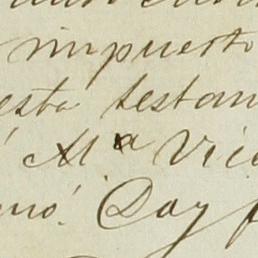 impuesto
esta testam
Mª Vice
nó. Doy f